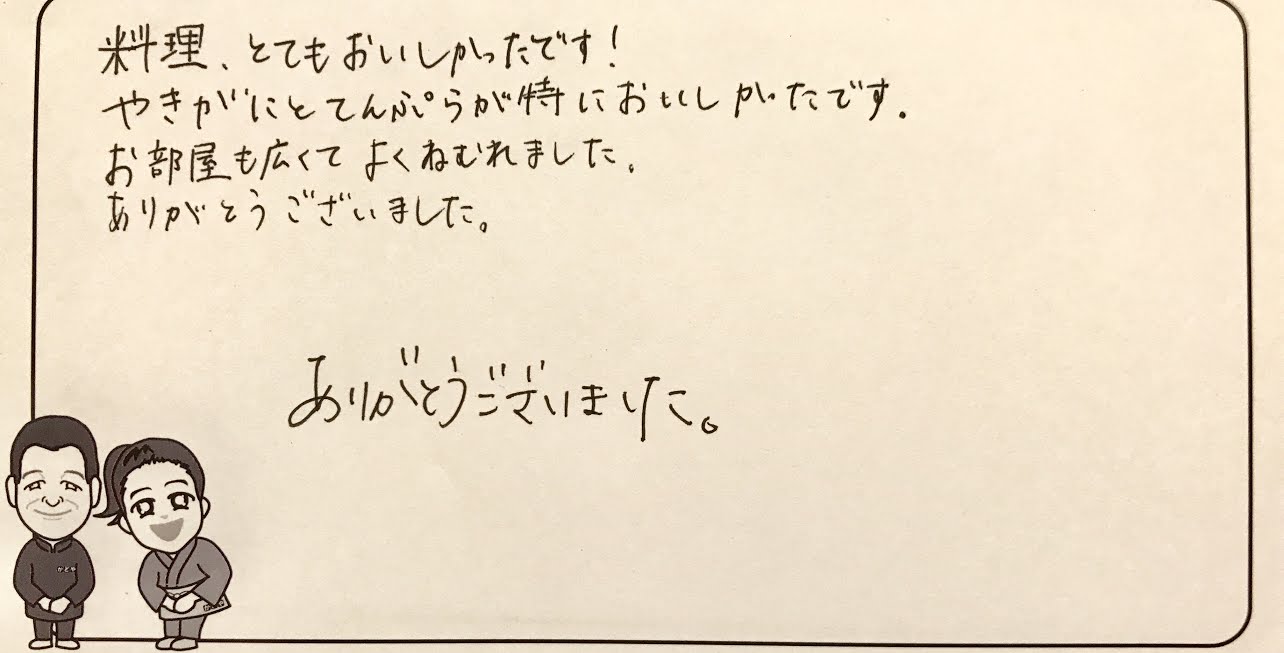 料理、とてもおいしかったです!
やきがにとてんぷらが特においしかったです.
お部屋も広くてよくねむれました.
ありがとうございました。
ありがとうございました。
かどや